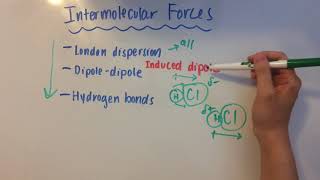 Intermolecular Forces
- London dispersion → all
Induced dipole
- Dipole-dipole
δ-
H Cl
- Hydrogen bonds
δ+
H Cl